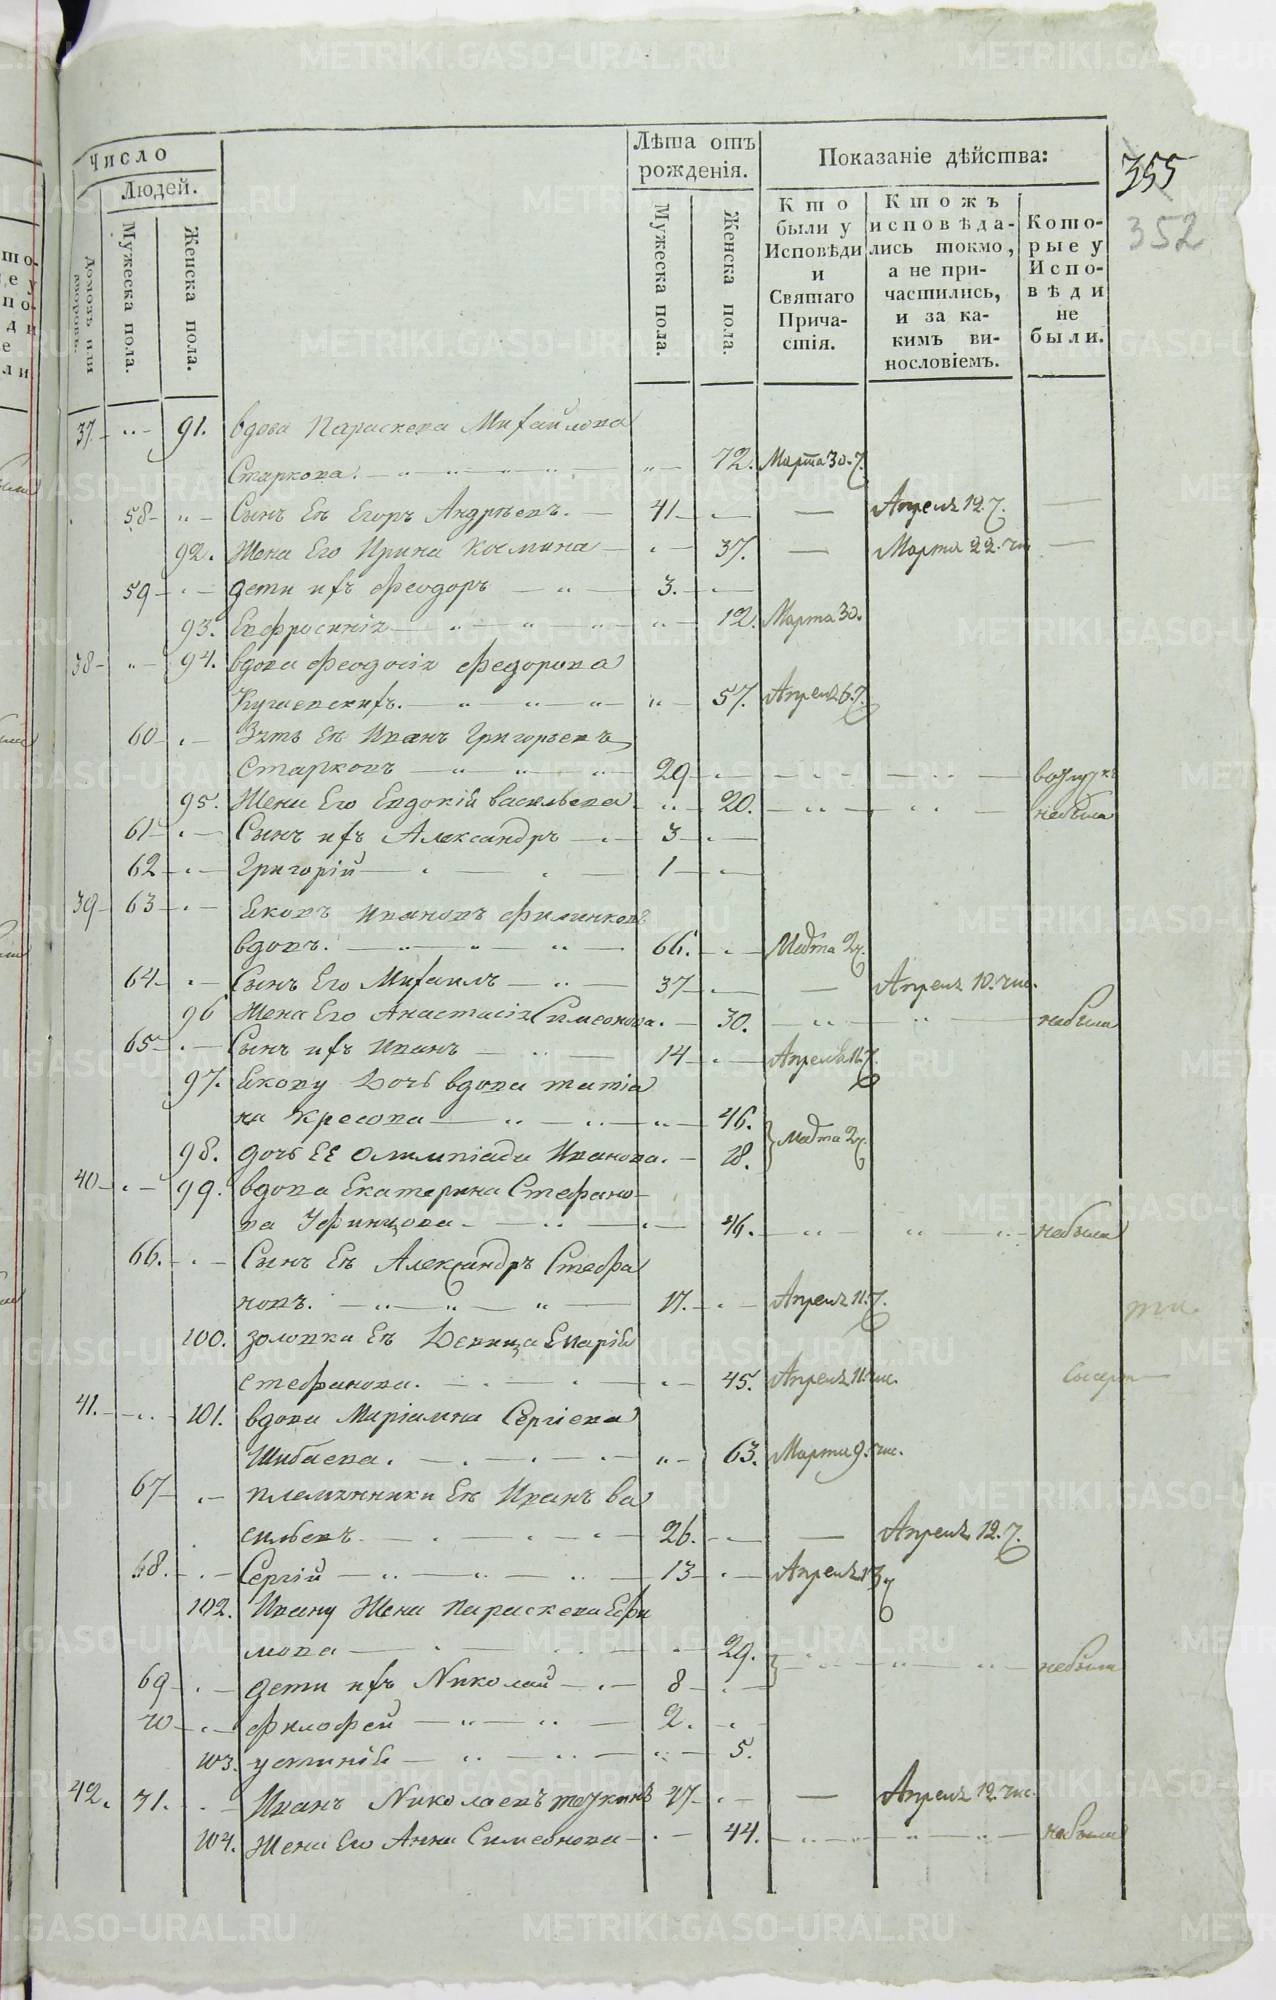 Число
Людей.
Домовъ или дворовъ.
Мужеска пола.
Женска пола.
Лѣта отъ рожденія.
Мужеска пола.
Женска пола.
Показаніе дѣйства:
Кто были у Исповѣди и Святаго Причастія.
Ктожъ исповѣдались токмо, а не причастились, и за какимъ винословіемъ.
Которые у Исповѣди не были.
355
352
37 — „ — 91. вдова Параскева Михайлова
Старкова. — „ — 72. Марта 30. ч.
58 — „ — Сынъ Ея Егоръ Андреевъ. — 41 — — Апреля 12. ч. —
92. Жена Его Ирина Космина — „ — 37. — Марта 22. чи —
59 — „ — дети ихъ Феодоръ — „ — 3. —
93. Евфросинія — „ — „ — 12. Марта 30.
38 — „ — 94. вдова Феодосія Федорова
Кушевскихъ. — „ — „ — 57. Апреля 6. ч.
60 — „ — Зять Ея Иванъ Григорьевъ
Старковъ — „ — 29 — „ — „ —
95. Жена Его Евдокія Васильева — „ — 20. — „ — небыла
61 — „ — Сынъ ихъ Александръ — „ — 3 — „ —
62 — „ — Григорій — „ — 1 — „ —
39 — 63 — „ — Яковъ Ивановъ Филинковъ
вдовъ. — „ — 66. — „ — Марта 2 ч.
64 — „ — Сынъ Его Михаилъ — „ — 37 — „ — Апреля 10. чис.
96 Жена Его Анастасія Симеонова. — 30. — „ — небыла
65 — „ — Сынъ ихъ Иванъ — „ — 14 — „ — Апреля 11. ч.
97. Якову Дочь вдова Татіа
на Кресова — „ — „ — 46.
98. дочь Ея Олимпіада Иванова. — 18. Марта 2 ч.
40 — „ — 99. вдова Екатерина Стефано
ва Уфинцова — „ — „ — 46. — „ — небыла
66. — „ — Сынъ Ея Александръ Стефа
новъ. — „ — 17. — „ — Апреля 11. ч.
100. золовка Ея Девица Марія
Стефанова. — „ — 45. Апреля 11. чис.
41. — „ — 101. вдова Маріамна Сергіева
Шибаева. — „ — 63. Марта 9. чис.
67 — „ — племянники Ея Иванъ Ва
сильевъ — „ — 26. — „ — Апреля 12. ч.
68. — „ — Сергій — „ — 13 — „ — Апреля 13 ч
102. Ивану Жена Параскева Ефи
мова — „ — 29. — „ — небыла
69 — „ — дети ихъ Николай — „ — 8 — „ —
70 — „ — Филофей — „ — 2. — „ —
103. Устинія — „ — „ — 5.
42. 71. — „ — Иванъ Николаевъ 47 — „ — Апреля 12. чис.
104. Жена Его Анна Симеонова — „ — 44. — „ — небыла
METRIKI.GASO-URAL.RU